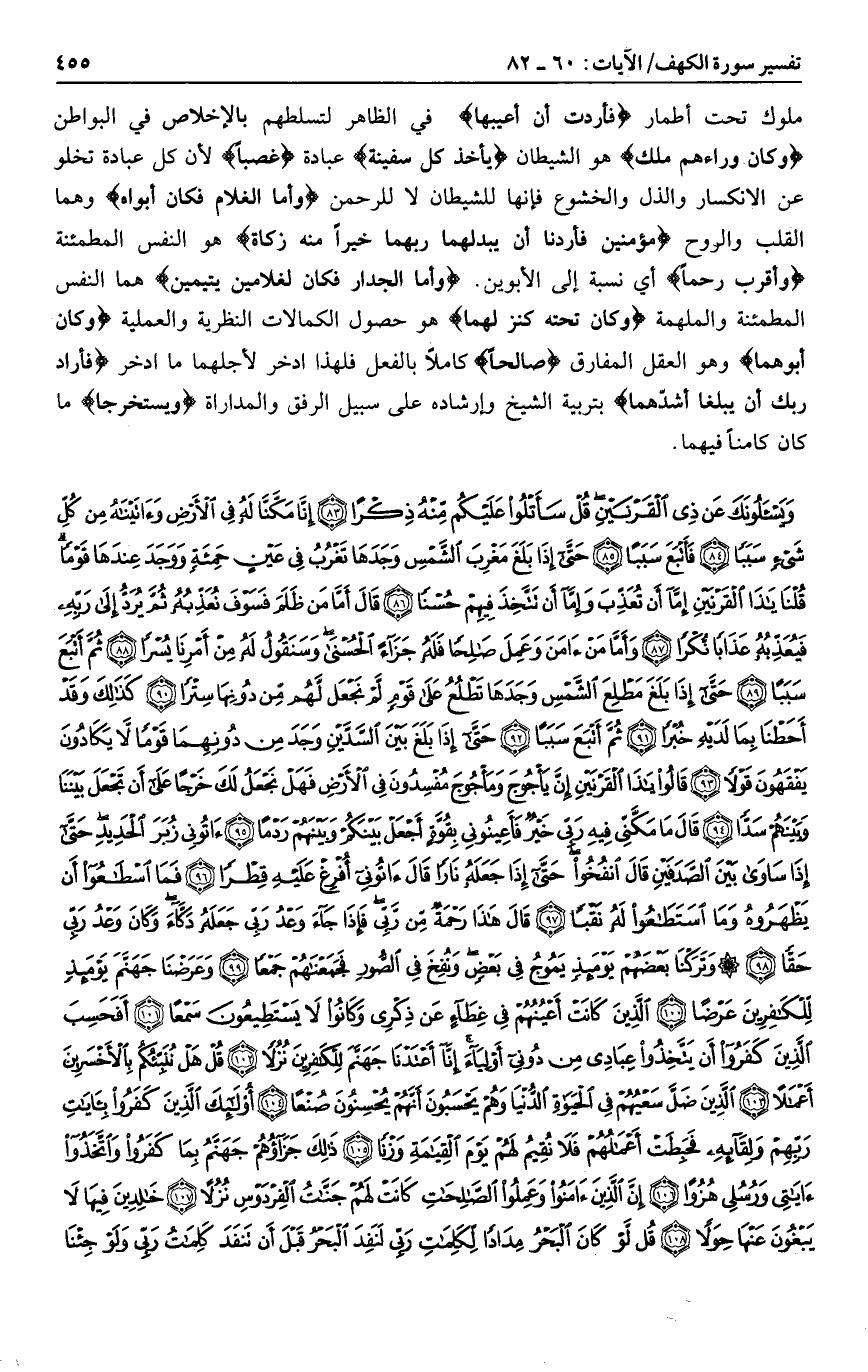 تفسير سورة الكهف/ الآيات : ٦٠ ـ ٨٢ ٤٥٥
ملوك تحت أطمار ﴿فأردت أن أعيبها﴾ في الظاهر لتسلطهم بالإخلاص في البواطن
﴿وكان وراءهم ملك﴾ هو الشيطان ﴿يأخذ كل سفينة﴾ عبادة ﴿غصباً﴾ لأن كل عبادة تخلو
عن الانكسار والذل والخشوع فإنها للشيطان لا للرحمن ﴿وأما الغلام فكان أبواه﴾ وهما
القلب والروح ﴿مؤمنين فأردنا أن يبدلهما ربهما خيراً منه زكاة﴾ هو النفس المطمئنة
﴿وأقرب رحماً﴾ أي نسبة إلى الأبوين. ﴿وأما الجدار فكان لغلامين يتيمين﴾ هما النفس
المطمئنة والملهمة ﴿وكان تحته كنز لهما﴾ هو حصول الكمالات النظرية والعملية ﴿وكان
أبوهما﴾ وهو العقل المفارق ﴿صالحاً﴾ كاملاً بالفعل فلهذا ادخر لأجلهما ما ادخر ﴿فأراد
ربك أن يبلغا أشدّهما﴾ بتربية الشيخ وإرشاده على سبيل الرفق والمداراة ﴿ويستخرجا﴾ ما
كان كامناً فيهما.
وَيَسْـَٔلُونَكَ عَن ذِى ٱلْقَرْنَيْنِۖ قُلْ سَأَتْلُوا۟ عَلَيْكُم مِّنْهُ ذِكْرًا ٨٣ إِنَّا مَكَّنَّا لَهُۥ فِى ٱلْأَرْضِ وَءَاتَيْنَٰهُ مِن كُلِّ
شَىْءٍ سَبَبًا ٨٤ فَأَتْبَعَ سَبَبًا ٨٥ حَتَّىٰٓ إِذَا بَلَغَ مَغْرِبَ ٱلشَّمْسِ وَجَدَهَا تَغْرُبُ فِى عَيْنٍ حَمِئَةٍ وَوَجَدَ عِندَهَا قَوْمًاۗ
قُلْنَا يَٰذَا ٱلْقَرْنَيْنِ إِمَّآ أَن تُعَذِّبَ وَإِمَّآ أَن تَتَّخِذَ فِيهِمْ حُسْنًا ٨٦ قَالَ أَمَّا مَن ظَلَمَ فَسَوْفَ نُعَذِّبُهُۥ ثُمَّ يُرَدُّ إِلَىٰ رَبِّهِۦ
فَيُعَذِّبُهُۥ عَذَابًا نُّكْرًا ٨٧ وَأَمَّا مَنْ ءَامَنَ وَعَمِلَ صَٰلِحًا فَلَهُۥ جَزَآءً ٱلْحُسْنَىٰۖ وَسَنَقُولُ لَهُۥ مِنْ أَمْرِنَا يُسْرًا ٨٨ ثُمَّ أَتْبَعَ
سَبَبًا ٨٩ حَتَّىٰٓ إِذَا بَلَغَ مَطْلِعَ ٱلشَّمْسِ وَجَدَهَا تَطْلُعُ عَلَىٰ قَوْمٍ لَّمْ نَجْعَل لَّهُم مِّن دُونِهَا سِتْرًا ٩٠ كَذَٰلِكَ وَقَدْ
أَحَطْنَا بِمَا لَدَيْهِ خُبْرًا ٩١ ثُمَّ أَتْبَعَ سَبَبًا ٩٢ حَتَّىٰٓ إِذَا بَلَغَ بَيْنَ ٱلسَّدَّيْنِ وَجَدَ مِن دُونِهِمَا قَوْمًا لَّا يَكَادُونَ
يَفْقَهُونَ قَوْلًا ٩٣ قَالُوا۟ يَٰذَا ٱلْقَرْنَيْنِ إِنَّ يَأْجُوجَ وَمَأْجُوجَ مُفْسِدُونَ فِى ٱلْأَرْضِ فَهَلْ نَجْعَلُ لَكَ خَرْجًا عَلَىٰٓ أَن تَجْعَلَ بَيْنَنَا
وَبَيْنَهُمْ سَدًّا ٩٤ قَالَ مَا مَكَّنِّى فِيهِ رَبِّى خَيْرٌ فَأَعِينُونِى بِقُوَّةٍ أَجْعَلْ بَيْنَكُمْ وَبَيْنَهُمْ رَدْمًا ٩٥ ءَاتُونِى زُبَرَ ٱلْحَدِيدِۖ حَتَّىٰٓ
إِذَا سَاوَىٰ بَيْنَ ٱلصَّدَفَيْنِ قَالَ ٱنفُخُوا۟ۖ حَتَّىٰٓ إِذَا جَعَلَهُۥ نَارًا قَالَ ءَاتُونِىٓ أُفْرِغْ عَلَيْهِ قِطْرًا ٩٦ فَمَا ٱسْطَٰعُوٓا۟ أَن
يَظْهَرُوهُ وَمَا ٱسْتَطَٰعُوا۟ لَهُۥ نَقْبًا ٩٧ قَالَ هَٰذَا رَحْمَةٌ مِّن رَّبِّىۖ فَإِذَا جَآءَ وَعْدُ رَبِّى جَعَلَهُۥ دَكَّآءَۖ وَكَانَ وَعْدُ رَبِّى
حَقًّا ٩٨ ۞ وَتَرَكْنَا بَعْضَهُمْ يَوْمَئِذٍ يَمُوجُ فِى بَعْضٍۖ وَنُفِخَ فِى ٱلصُّورِ فَجَمَعْنَٰهُمْ جَمْعًا ٩٩ وَعَرَضْنَا جَهَنَّمَ يَوْمَئِذٍ
لِّلْكَٰفِرِينَ عَرْضًا ١٠٠ ٱلَّذِينَ كَانَتْ أَعْيُنُهُمْ فِى غِطَآءٍ عَن ذِكْرِى وَكَانُوا۟ لَا يَسْتَطِيعُونَ سَمْعًا ١٠١ أَفَحَسِبَ
ٱلَّذِينَ كَفَرُوٓا۟ أَن يَتَّخِذُوا۟ عِبَادِى مِن دُونِىٓ أَوْلِيَآءَۚ إِنَّآ أَعْتَدْنَا جَهَنَّمَ لِلْكَٰفِرِينَ نُزُلًا ١٠٢ قُلْ هَلْ نُنَبِّئُكُم بِٱلْأَخْسَرِينَ
أَعْمَٰلًا ١٠٣ ٱلَّذِينَ ضَلَّ سَعْيُهُمْ فِى ٱلْحَيَوٰةِ ٱلدُّنْيَا وَهُمْ يَحْسَبُونَ أَنَّهُمْ يُحْسِنُونَ صُنْعًا ١٠٤ أُو۟لَٰٓئِكَ ٱلَّذِينَ كَفَرُوا۟ بِـَٔايَٰتِ
رَبِّهِمْ وَلِقَآئِهِۦ فَحَبِطَتْ أَعْمَٰلُهُمْ فَلَا نُقِيمُ لَهُمْ يَوْمَ ٱلْقِيَٰمَةِ وَزْنًا ١٠٥ ذَٰلِكَ جَزَآؤُهُمْ جَهَنَّمُ بِمَا كَفَرُوا۟ وَٱتَّخَذُوٓا۟
ءَايَٰتِى وَرُسُلِى هُزُوًا ١٠٦ إِنَّ ٱلَّذِينَ ءَامَنُوا۟ وَعَمِلُوا۟ ٱلصَّٰلِحَٰتِ كَانَتْ لَهُمْ جَنَّٰتُ ٱلْفِرْدَوْسِ نُزُلًا ١٠٧ خَٰلِدِينَ فِيهَا لَا
يَبْغُونَ عَنْهَا حِوَلًا ١٠٨ قُل لَّوْ كَانَ ٱلْبَحْرُ مِدَادًا لِّكَلِمَٰتِ رَبِّى لَنَفِدَ ٱلْبَحْرُ قَبْلَ أَن تَنفَدَ كَلِمَٰتُ رَبِّى وَلَوْ جِئْنَا